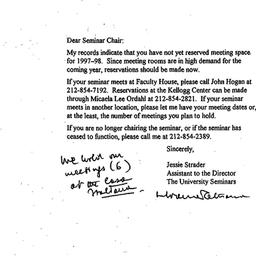 Dear Seminar Chair:
My records indicate that you have not yet reserved meeting space
for 1997-98. Since meeting rooms are in high demand for the
coming year, reservations should be made now.
If your seminar meets at Faculty House, please call John Hogan at
212-854-7192. Reservations at the Kellogg Center can be made
through Micaela Lee Ordahl at 212-854-2821. If your seminar
meets in another location, please let me have your meeting dates or,
at the least, the number of meetings you plan to hold.
If you are no longer chairing the seminar, or if the seminar has
ceased to function, please call me at 212-854-2389.
Sincerely,
Jessie Strader
Assistant to the Director
The University Seminars
We hold our
meetings (6)
at the Casa
Italiana.